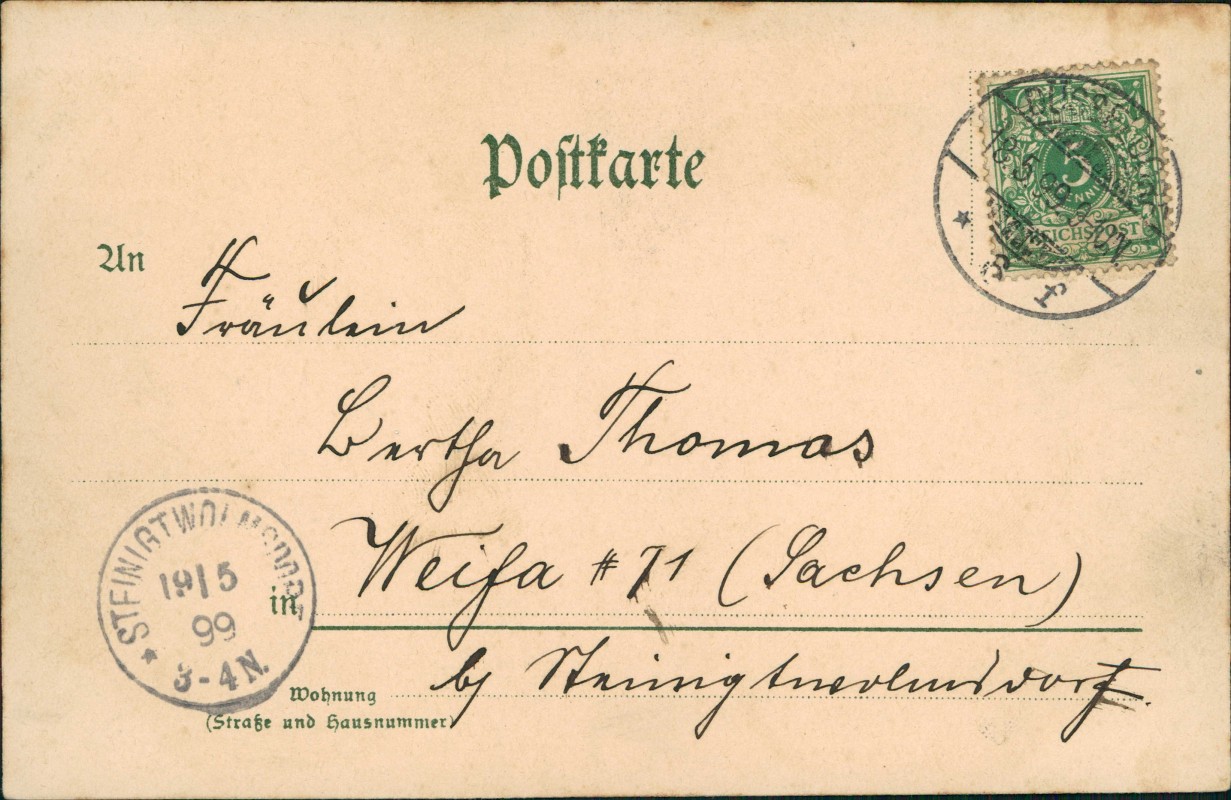 Postkarte
5
REICHSPOST
18 5 99
* 1 f
An
Fräulein
Bertha Thomas
Weifa # 71 (Sachsen)
in
by Steinigtwolmsdorf.
Wohnung
(Straße und Hausnummer)
* STEINIGTWOLMSDORF
19/5
99
3-4 N.